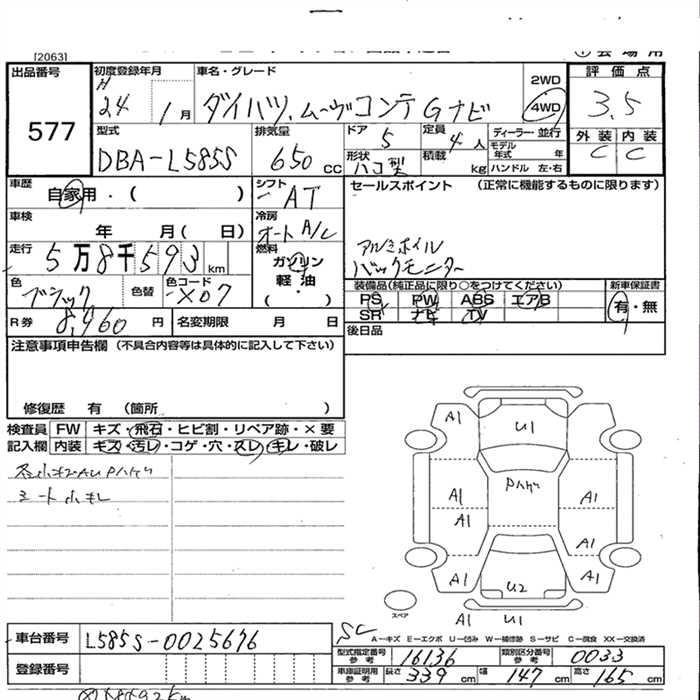 [2063]
出品番号
577
初度登録年月
H
24 1月
車名・グレード
ダイハツ、ムーヴコンテ Gナビ
2WD
4WD
評価点
3.5
外装 内装
C C
型式
DBA-L585S
排気量
650 cc
ドア
5
定員
4人
形状
ハコ型
積載
kg
ディーラー・並行
モデル年式 年
ハンドル 左・右
車歴
自家用・( )
シフト
AT
セールスポイント (正常に機能するものに限ります)
アルミホイル
バックモニター
車検
年 月( 日)
冷房
オートA/C
走行
5万8千593km
燃料
ガソリン
軽油
・
( )
色
ブラック
色替
色コード
X07
装備品(純正品に限り○をつけてください)
PS PW ABS エアB
SR ナビ TV
新車保証書
有・無
R券
8,460円
名変期限 月 日
後日品
注意事項申告欄 (不具合内容等は具体的に記入して下さい)
修復歴 有 (箇所 )
検査員記入欄
FW キズ・飛石・ヒビ割・リペア跡・×要
内装 キズ・汚レ・コゲ・穴・スレ・キレ・破レ
シート小キレ
A1
U1
Pハゲ
A1
A1
A1
A1
A1
U2
A1
スペア
A1 U1
A-キズ E-エクボ U-凹み W-補修跡 S-サビ C-腐食 XX-交換済
車台番号
L585S-0025676
登録番号
型式指定番号 参考
16136
類別区分番号 参考
0033
車庫証明用 参考
長さ 339cm
幅 147cm
高さ 165cm